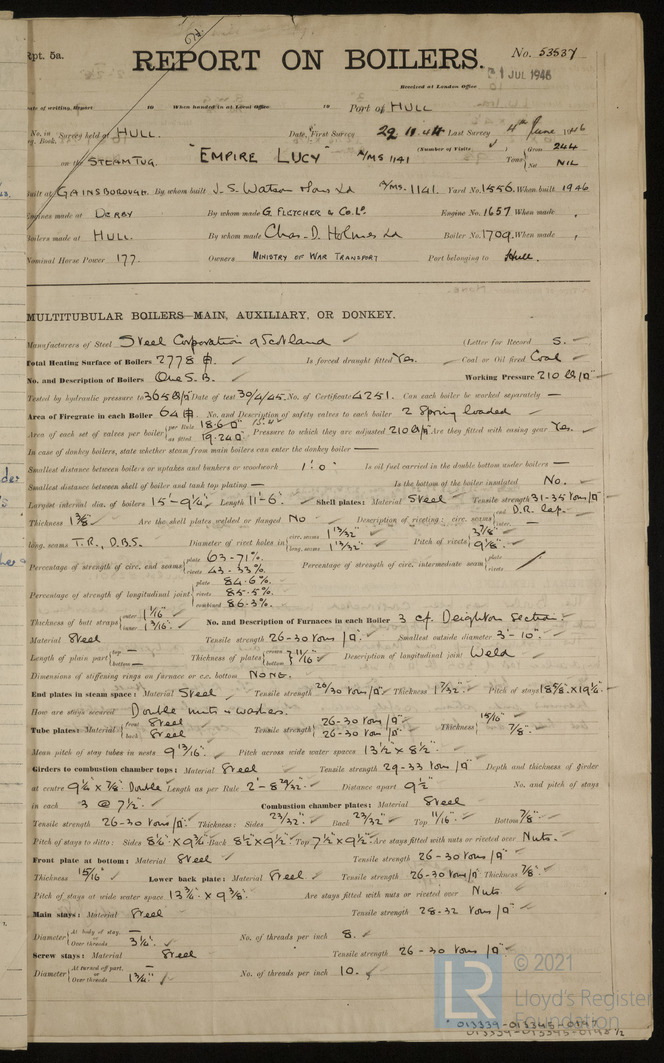 Rpt. 5a.
REPORT ON BOILERS.
No. 53537
Received at London Office
JUL 1946
Date of writing Report 19 When handed in at Local Office 19 Port of HULL
No. in Reg. Book. Survey held at HULL. Date, First Survey 29.11.44 Last Survey 4th June 1946
on the STEAM TUG. "EMPIRE LUCY" A/MS 1141 (Number of Visits ✓) Tons { Gross 244 Net NIL
Built at GAINSBOROUGH. By whom built J. S. Watson & Sons Ld A/MS. 1141. Yard No. 1556. When built 1946
Engines made at DERBY By whom made G. FLETCHER & Co. Ld. Engine No. 1657. When made "
Boilers made at HULL. By whom made Chas. D. Holmes Ld Boiler No. 1709. When made "
Nominal Horse Power 177. Owners MINISTRY OF WAR TRANSPORT Port belonging to Hull.
MULTITUBULAR BOILERS—MAIN, AUXILIARY, OR DONKEY.
Manufacturers of Steel Steel Corporation of Scotland (Letter for Record S.
Total Heating Surface of Boilers 2778 ☐' Is forced draught fitted Yes. Coal or Oil fired Coal
No. and Description of Boilers One S.B. Working Pressure 210 lb/☐"
Tested by hydraulic pressure to 365 lb/☐" Date of test 30/4/45. No. of Certificate 4251. Can each boiler be worked separately —
Area of Firegrate in each Boiler 64 ☐' No. and Description of safety valves to each boiler 2 Spring loaded
Area of each set of valves per boiler { per Rule 18.6 ☐" as fitted 19.24 ☐" Pressure to which they are adjusted 210 lb/☐" Are they fitted with easing gear Yes.
In case of donkey boilers, state whether steam from main boilers can enter the donkey boiler —
Smallest distance between boilers or uptakes and bunkers or woodwork 1'-0" Is oil fuel carried in the double bottom under boilers —
Smallest distance between shell of boiler and tank top plating — Is the bottom of the boiler insulated No.
Largest internal dia. of boilers 15'-9¼" Length 11'-6" Shell plates: Material Steel Tensile strength 31-35 tons/☐"
Thickness 1⅜" Are the shell plates welded or flanged No Description of riveting: circ. seams { end D.R. lap. inter. —
long. seams T.R., D.B.S. Diameter of rivet holes in { circ. seams 1 13/32" long. seams 1 13/32" Pitch of rivets { 3⅞" 9⅛"
Percentage of strength of circ. end seams { plate 63.71% rivets 43.33% Percentage of strength of circ. intermediate seam { plate rivets
Percentage of strength of longitudinal joint { plate 84.6% rivets 85.5% combined 86.3%
Thickness of butt straps { outer 1 1/16" inner 1 3/16" No. and Description of Furnaces in each Boiler 3 c.f. Deighton Section
Material Steel Tensile strength 26-30 tons/☐" Smallest outside diameter 3'-10"
Length of plain part { top — bottom — Thickness of plates { crown bottom } 11/16" Description of longitudinal joint Weld
Dimensions of stiffening rings on furnace or c.c. bottom NONE.
End plates in steam space: Material Steel Tensile strength 26/30 tons/☐" Thickness 1 7/32" Pitch of stays
How are stays secured Double nuts & washers.
Tube plates: Material { front Steel back Steel Tensile strength { 26-30 tons/☐" 26-30 tons/☐" Thickness { 15/16" 7/8"
Mean pitch of stay tubes in nests 9 13/16" Pitch across wide water spaces 13½" x 8½"
Girders to combustion chamber tops: Material Steel Tensile strength 29-33 tons/☐" Depth and thickness of girder
at centre 9¼" x ⅞" Double Length as per Rule 2'-8 29/32" Distance apart 9½" No. and pitch of stays
in each 3 @ 7½" Combustion chamber plates: Material Steel
Tensile strength 26-30 tons/☐" Thickness: Sides 23/32" Back 23/32" Top 11/16" Bottom 7/8"
Pitch of stays to ditto: Sides 8¼" x 9¾" Back 8½" x 9½" Top 7½" x 9½" Are stays fitted with nuts or riveted over Nuts.
Front plate at bottom: Material Steel Tensile strength 26-30 tons/☐"
Thickness 15/16" Lower back plate: Material Steel Tensile strength 26-30 tons/☐" Thickness 7/8"
Pitch of stays at wide water space 13¾" x 9⅜" Are stays fitted with nuts or riveted over Nuts
Main stays: Material Steel Tensile strength 28-32 tons/☐"
Diameter { At body of stay, — or Over threads 3¼" No. of threads per inch 8.
Screw stays: Material Steel Tensile strength 26-30 tons/☐"
Diameter { At turned off part, — or Over threads 1¾" No. of threads per inch 10.
LR
© 2021
Lloyd's Register
Foundation
013339-013345-0197
013339-013345-0198 1/2